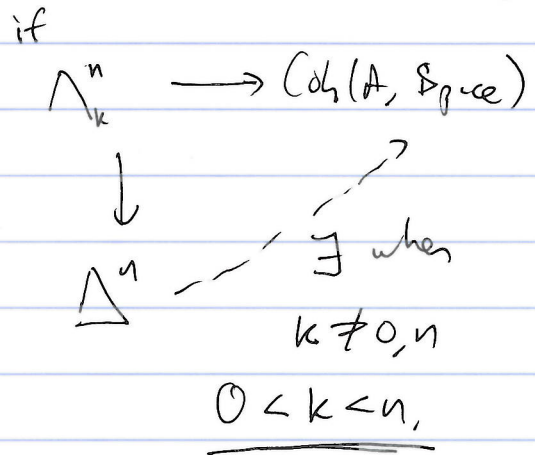 if
Λⁿₖ ⟶ Coh(A, Space)
↓
Δⁿ
∃ when
k ≠ 0, n
0 < k < n,